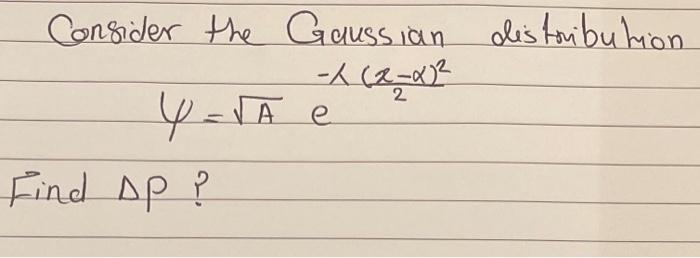 Consider the Gaussian distribution
ψ = √A e^{-λ (x-α)²/2}
Find Δp ?